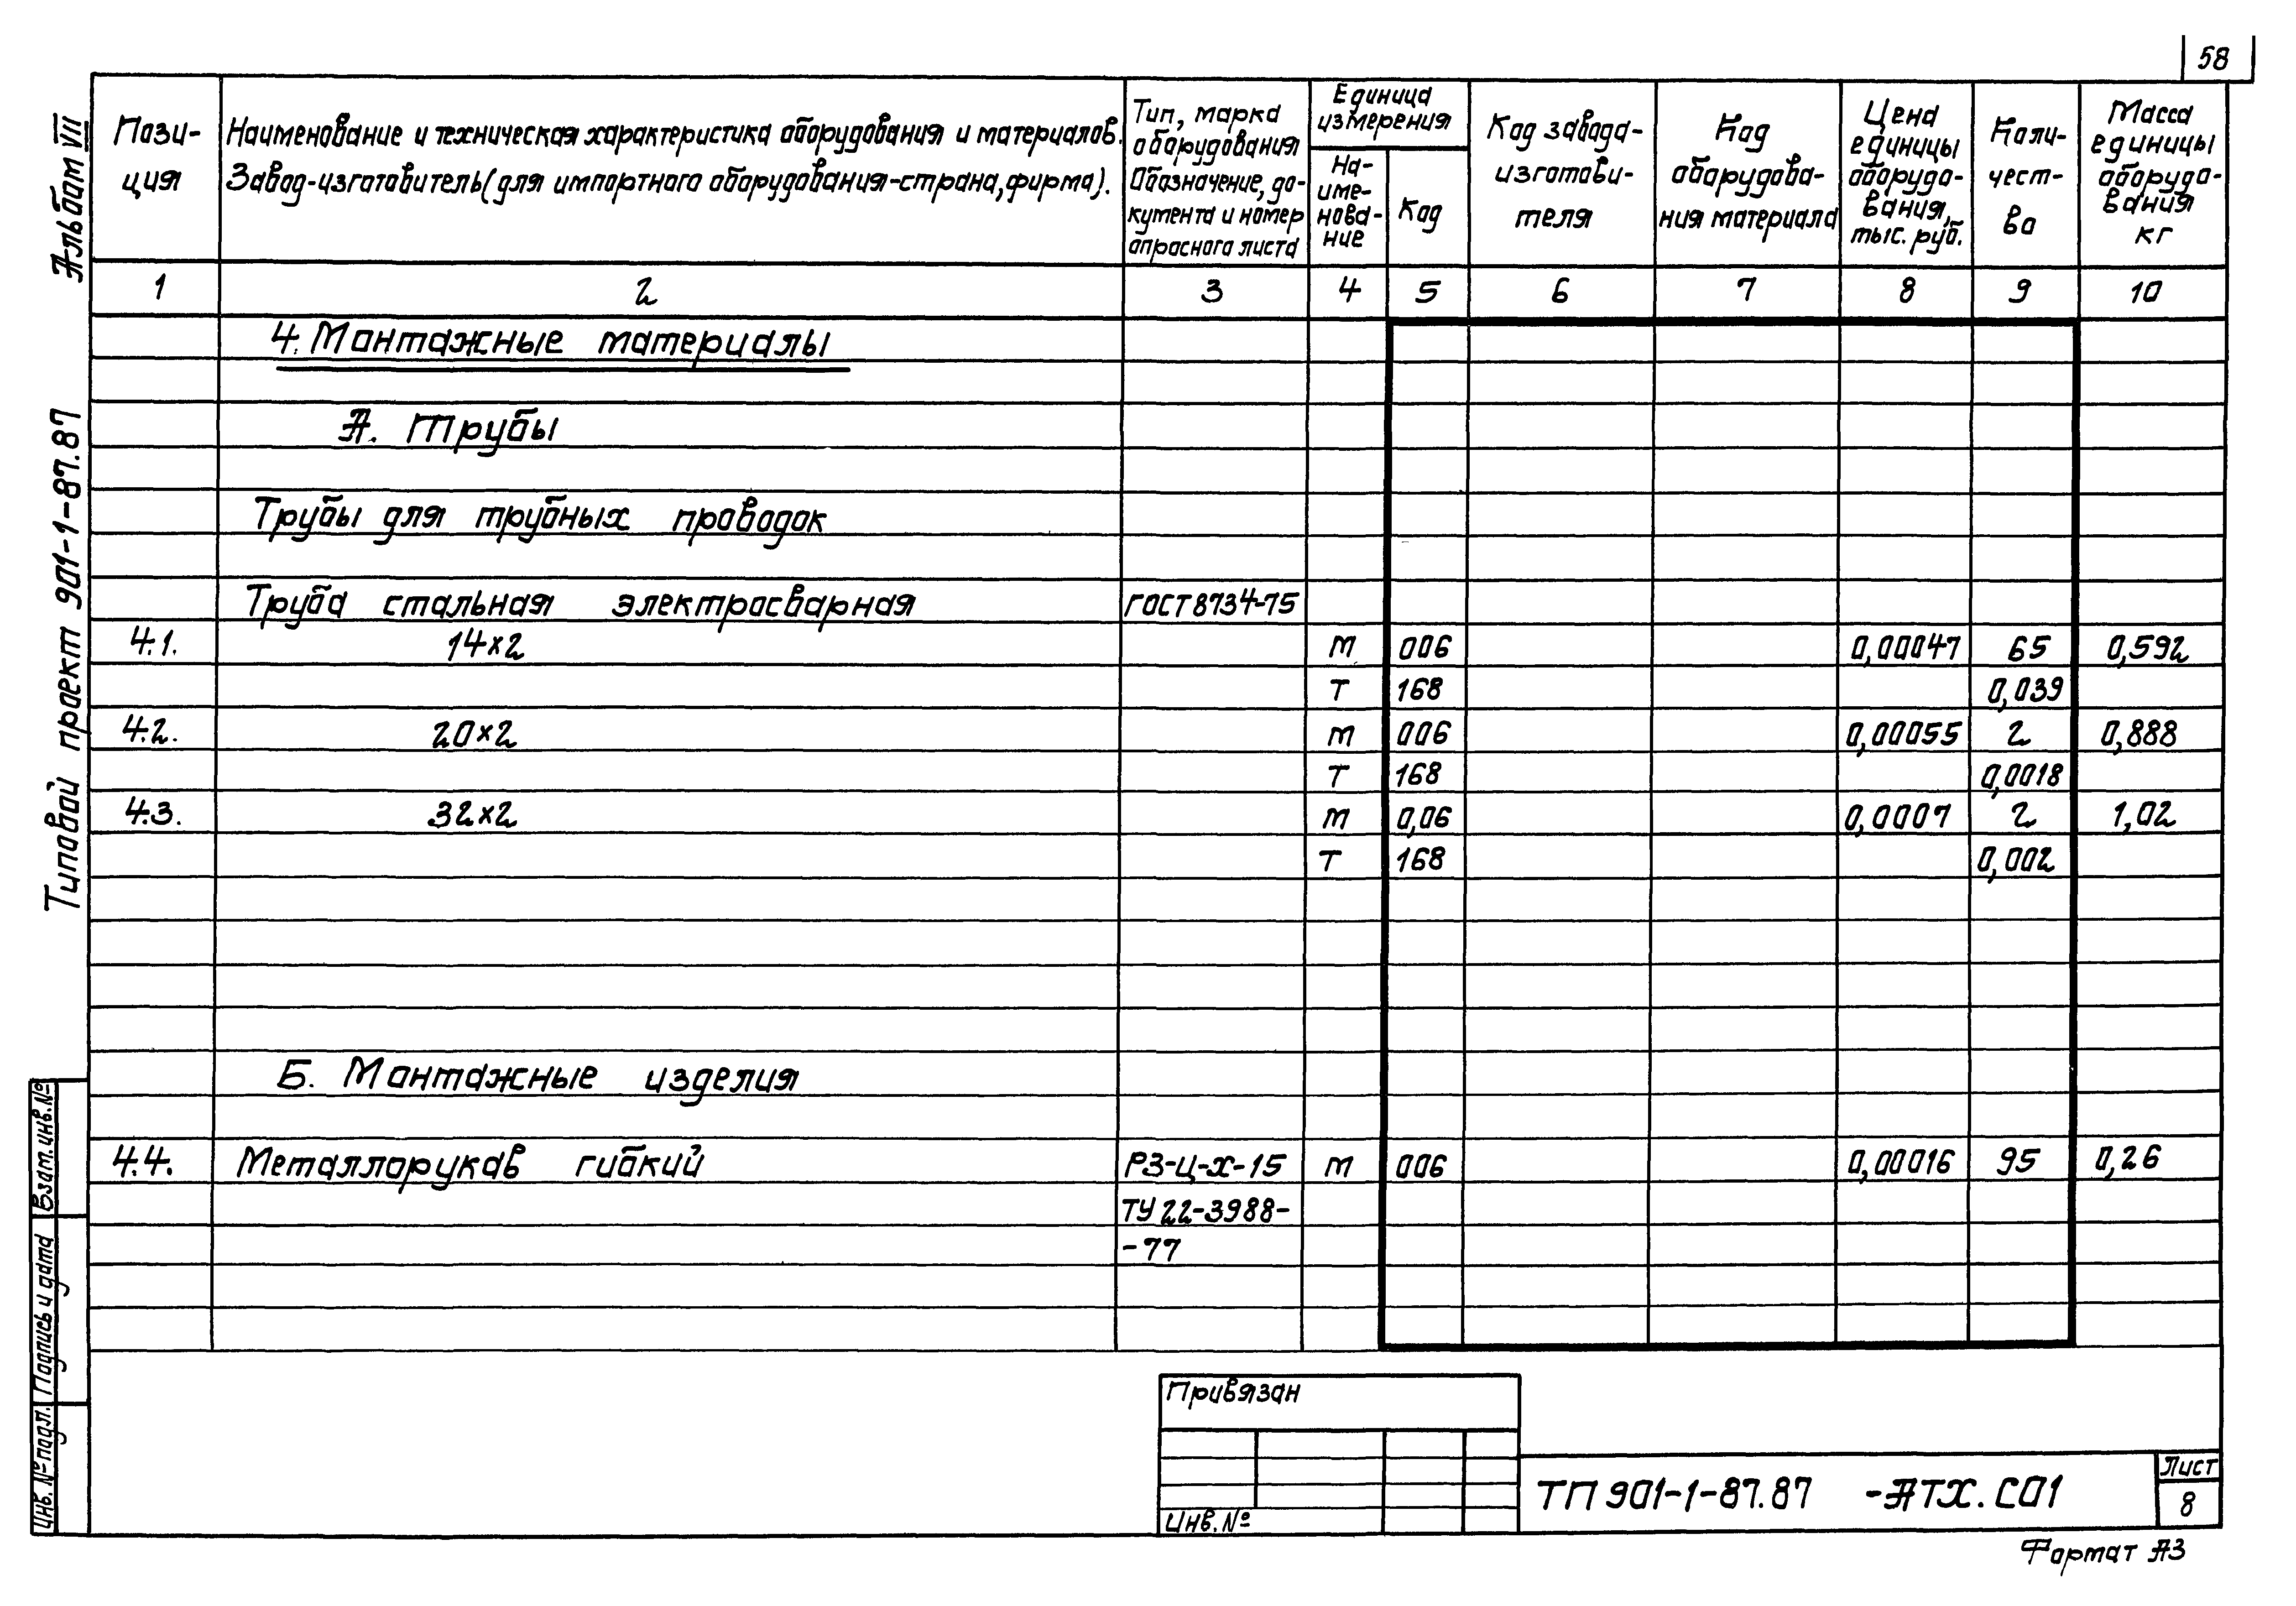 58
Альбом VII
Типовой проект 901-1-87.87
Взам.инв.№
Подпись и дата
Инв. № подл.
Пози-
ция
Наименование и техническая характеристика оборудования и материалов.
Завод-изготовитель (для импортного оборудования-страна, фирма).
Тип, марка
оборудования
Обозначение, до-
кумента и номер
опросного листа
Единица
измерения
На-
име-
нова-
ние
Код
Код завода-
изготови-
теля
Код
оборудова-
ния материала
Цена
единицы
оборудо-
вания,
тыс. руб.
Коли-
чест-
во
Масса
единицы
оборудо-
вания
кг
1 2 3 4 5 6 7 8 9 10
4. Монтажные материалы
А. Трубы
Трубы для трубных проводок
Труба стальная электросварная ГОСТ 8734-75
4.1. 14×2 м 006 0,00047 65 0,592
т 168 0,039
4.2. 20×2 м 006 0,00055 2 0,888
т 168 0,0018
4.3. 32×2 м 0,06 0,0007 2 1,02
т 168 0,002
Б. Монтажные изделия
4.4. Металлорукав гибкий РЗ-Ц-Х-15 м 006 0,00016 95 0,26
ТУ 22-3988-
-77
Привязан
Инв. №
ТП 901-1-87.87 -АТХ.СО1
Лист
8
Формат А3